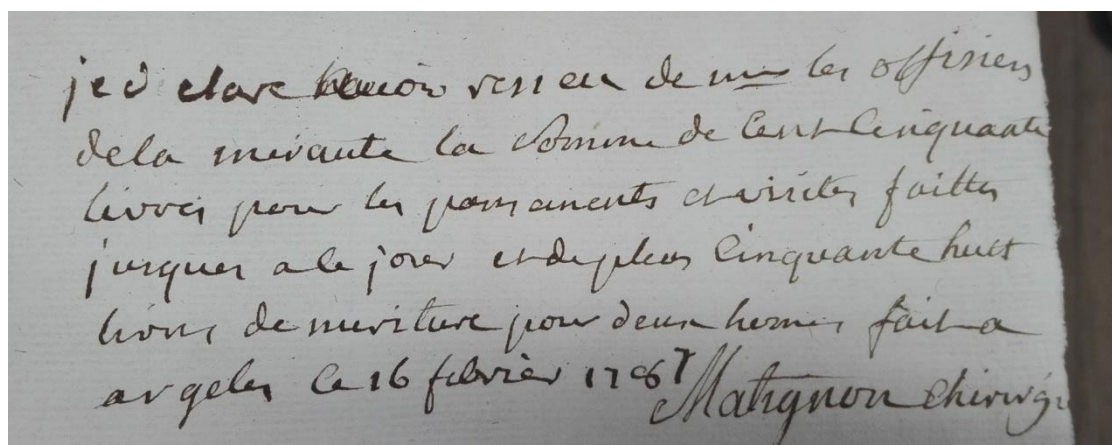 je d clare avoir resseu de mrs les offisiers
dela miravte la somme de cent cinquante
livres pour les pansements et visites faittes
jusques a le jour et de plus cinquante huit
livres de nuriture pour deux homes fait a
argeles le 16 fevrier 1767
Matignon chirurg